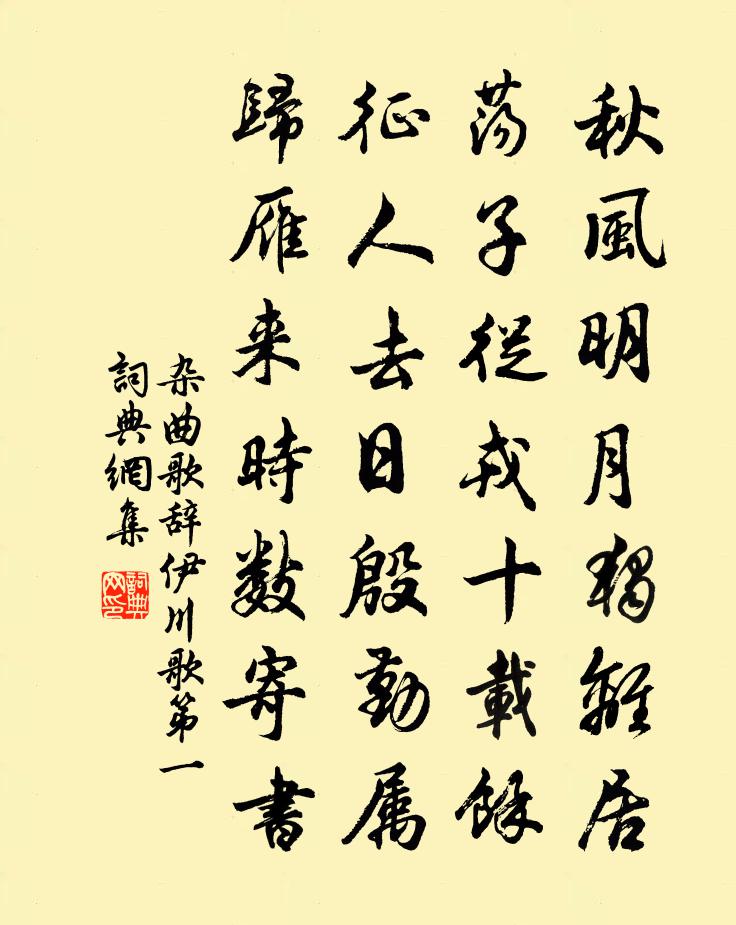 秋風明月獨離居
蕩子從戎十載餘
征人去日殷勤属
歸雁来時数寄書
杂曲歌辞伊川歌第一
詞典網集
詞典網印